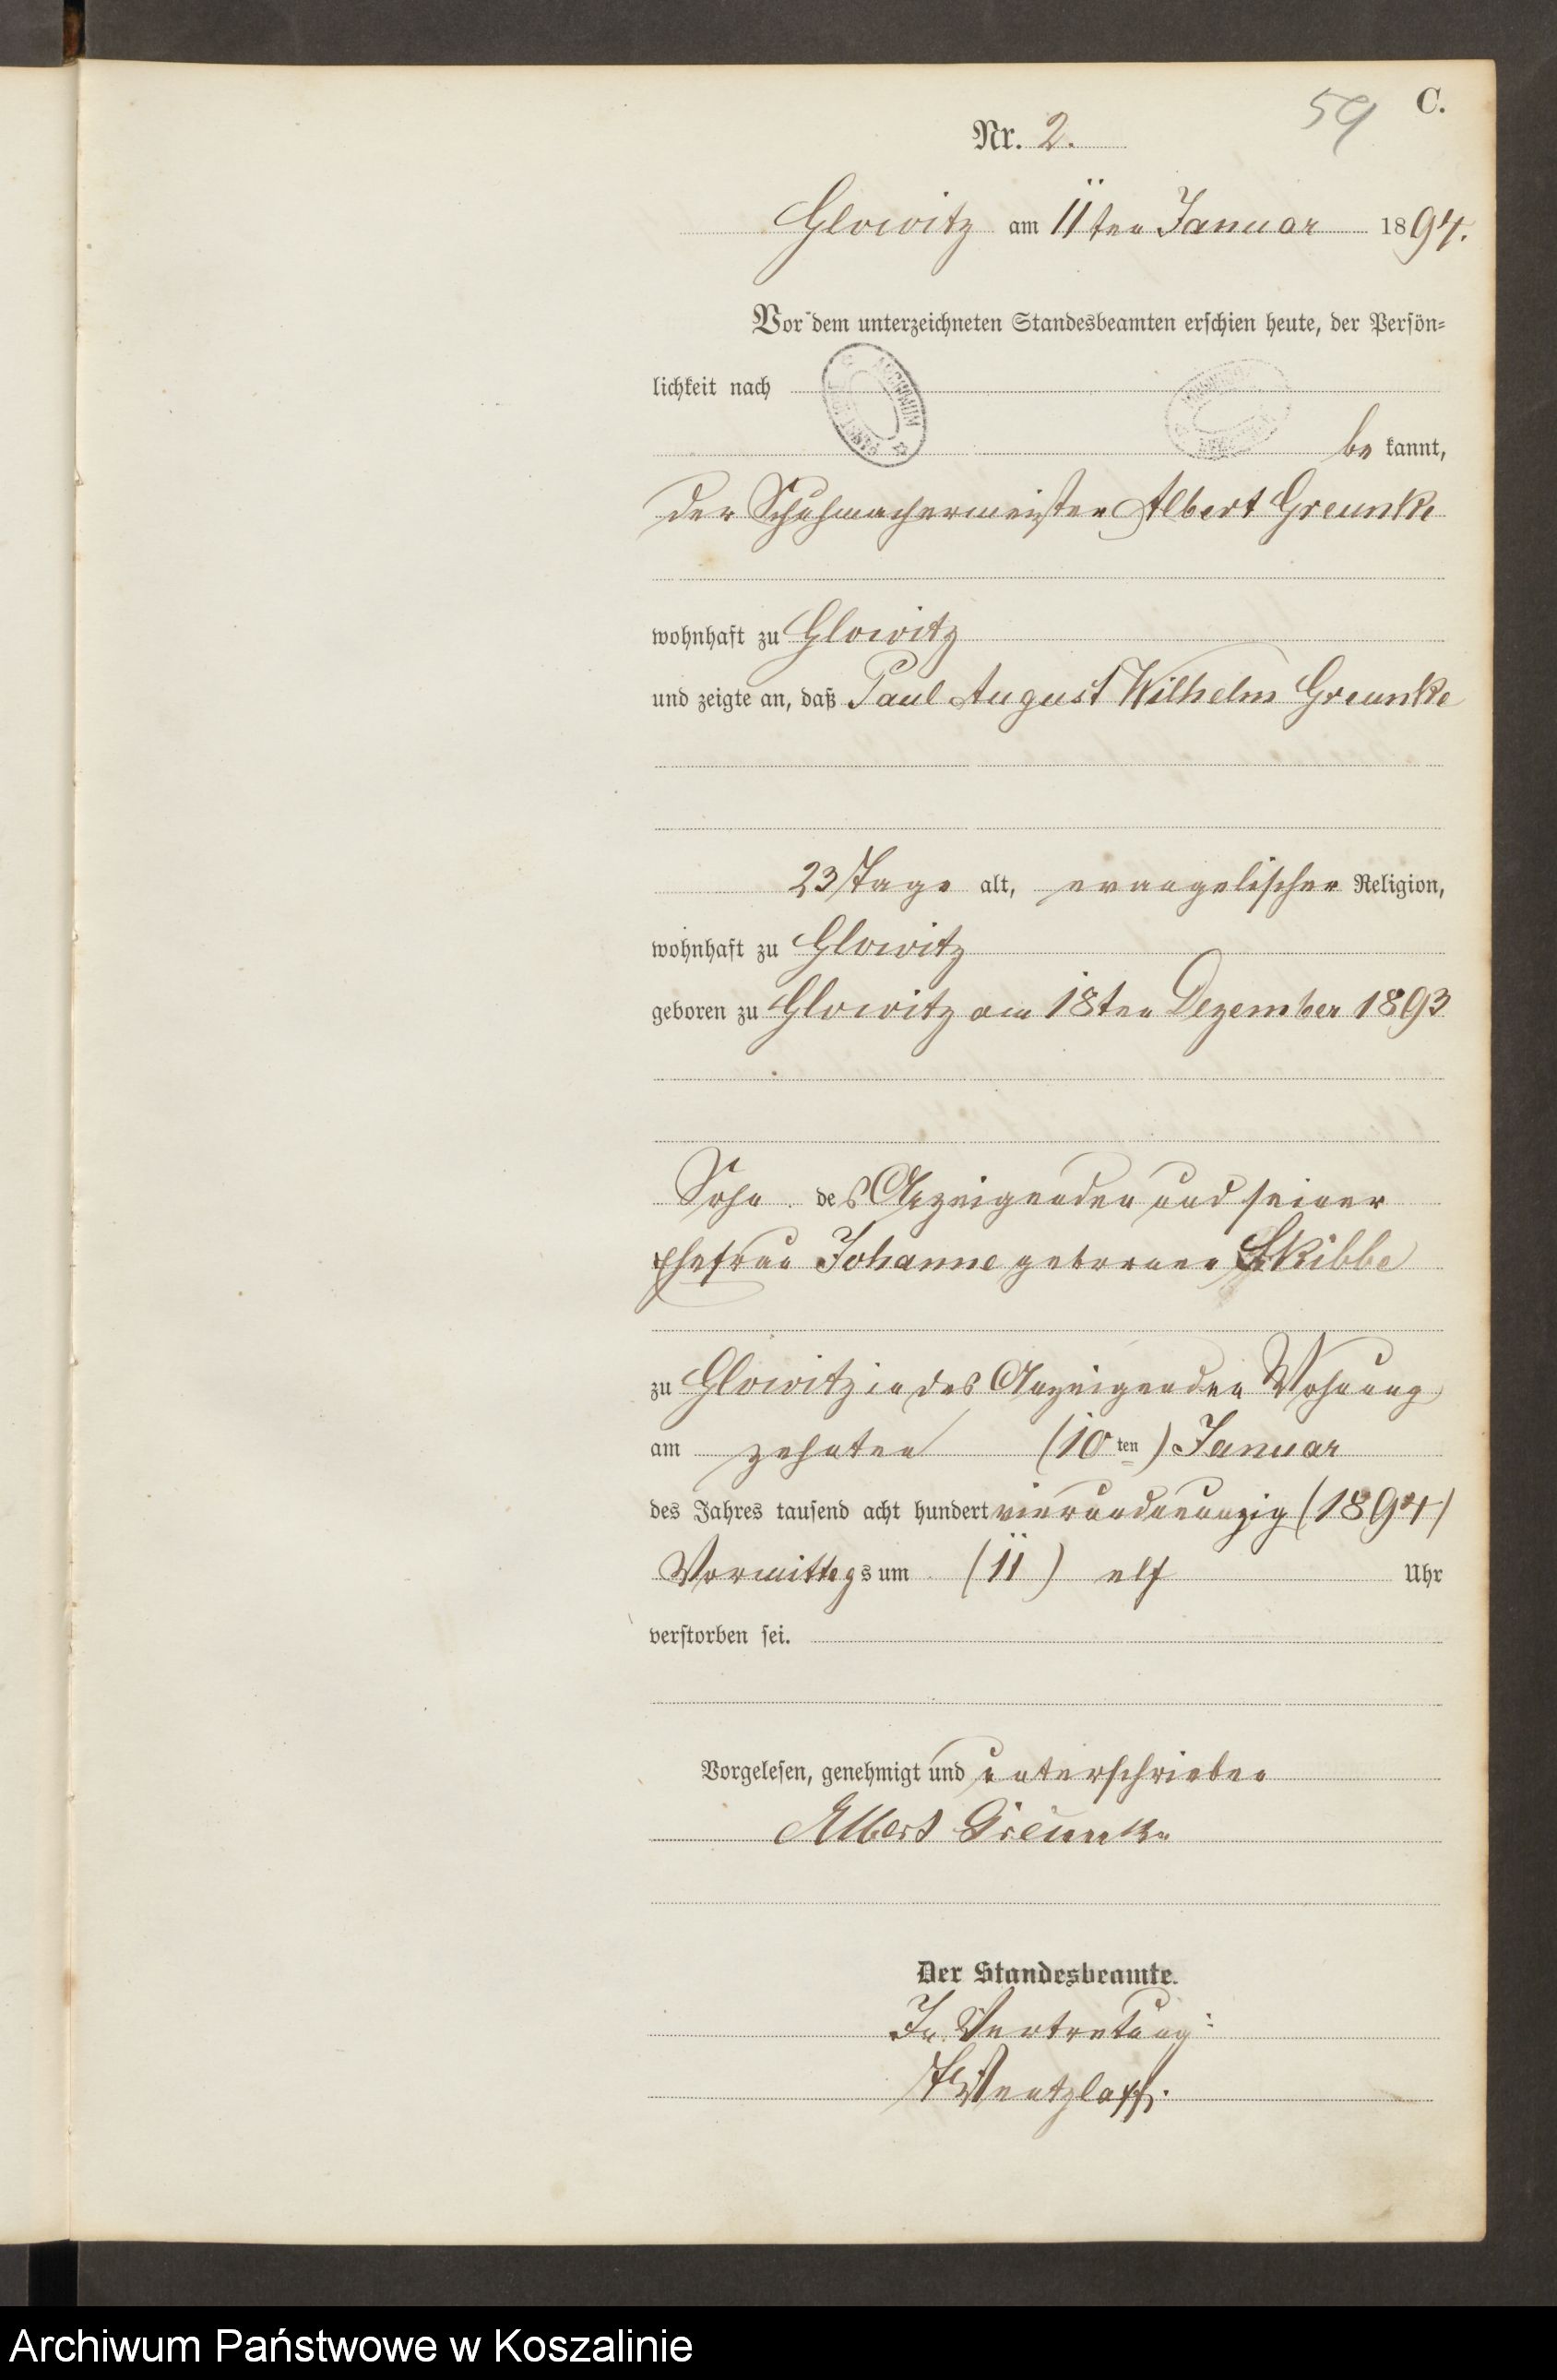 59 C.
Nr. 2.
Glowitz am 11ten Januar 1894.
Vor dem unterzeichneten Standesbeamten erschien heute, der Persön-
lichkeit nach
be kannt,
der Schuhmachermeister Albert Greunke
wohnhaft zu Glowitz
und zeigte an, daß Paul August Wilhelm Greunke
23 Tage alt, evangelischer Religion,
wohnhaft zu Glowitz
geboren zu Glowitz am 18ten Dezember 1893
Sohn des Anzeigenden und seiner
Ehefrau Johanne geborenen Skibbe
zu Glowitz in des Anzeigenden Wohnung
am zehnten (10 ten) Januar
des Jahres tausend acht hundert vierundneunzig (1894)
Vormittags um (11) elf Uhr
verstorben sei.
Vorgelesen, genehmigt und unterschrieben
Albert Greunke
Der Standesbeamte.
In Vertretung:
Wentzlaff.
Archiwum Państwowe w Koszalinie